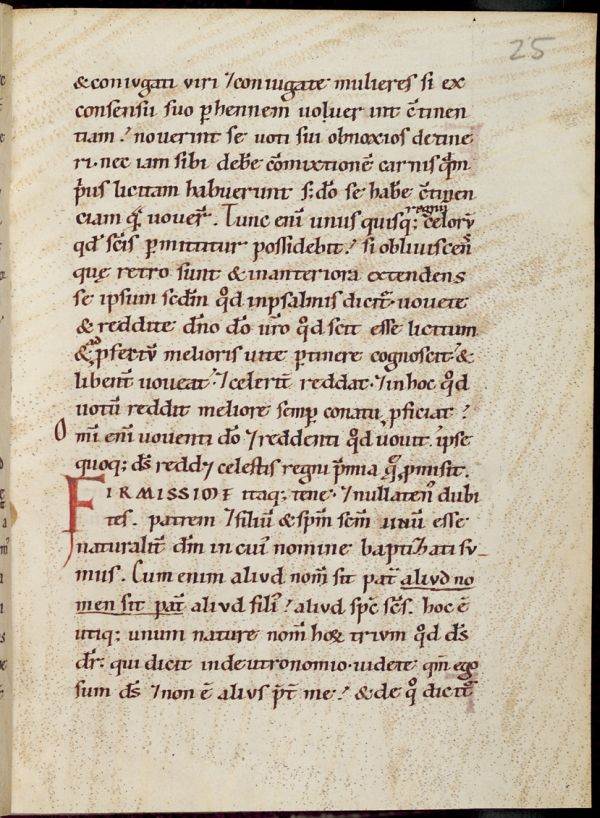 25
&coniugati viri ⁊coniugate mulieres si ex
consensu suo p̄hennem uoluerint c̄tinen
tiam? nouerint se uoti sui obnoxios detine
ri· nec iam sibi deb&̄e c̄omixtionē carnis qm̄
p̄us licitam habuerunt s; dō se hab&̄e c̄tinen
ciam quā uouer̄. Tunc eni unus quisq; regnū celorū
qd̄ sc̄is p̄mittitur possidebit? si obliuiscens
quę retro sunt & inanteriora extendens
se ipsum scdm̄ qd̄ inpsalmis dicit̄ uouete
& reddite dn̄o dō ur̄o qd̄ scit esse licitum
& p̄fectū melioris uite p̄tinere cognoscit &
libent̄ uoueat· ⁊celerit̄ reddat· ⁊inhoc qd̄
uotū reddit meliore semp̄ conatu p̄ficiat?
Omi eni uouenti dō ⁊reddenti qd̄ uouit. ipse
quoq; ds̄ redd& celestis regni p̄mia quę p̄misit.
FIRMISSIME itaq; tene· ⁊nullaten dubi
tes. patrem ⁊filiū & sp̄m sc̄m unū esse
naturalit̄ dm̄ in cui nomine baptizati su
mus. Cum enim aliud nom̄ sit pat̄ aliud no
men sit pat̄ aliud filii? aliud sp̄c sc̄s. hoc ē
utiq; unum nature nom̄ hoꝝ trium qd̄ ds̄
dr̄; qui dicit indeutronomio· uidete qm̄ ego
sum ds̄ ⁊non ē alius p̄t me? & de q̊ dicit̄